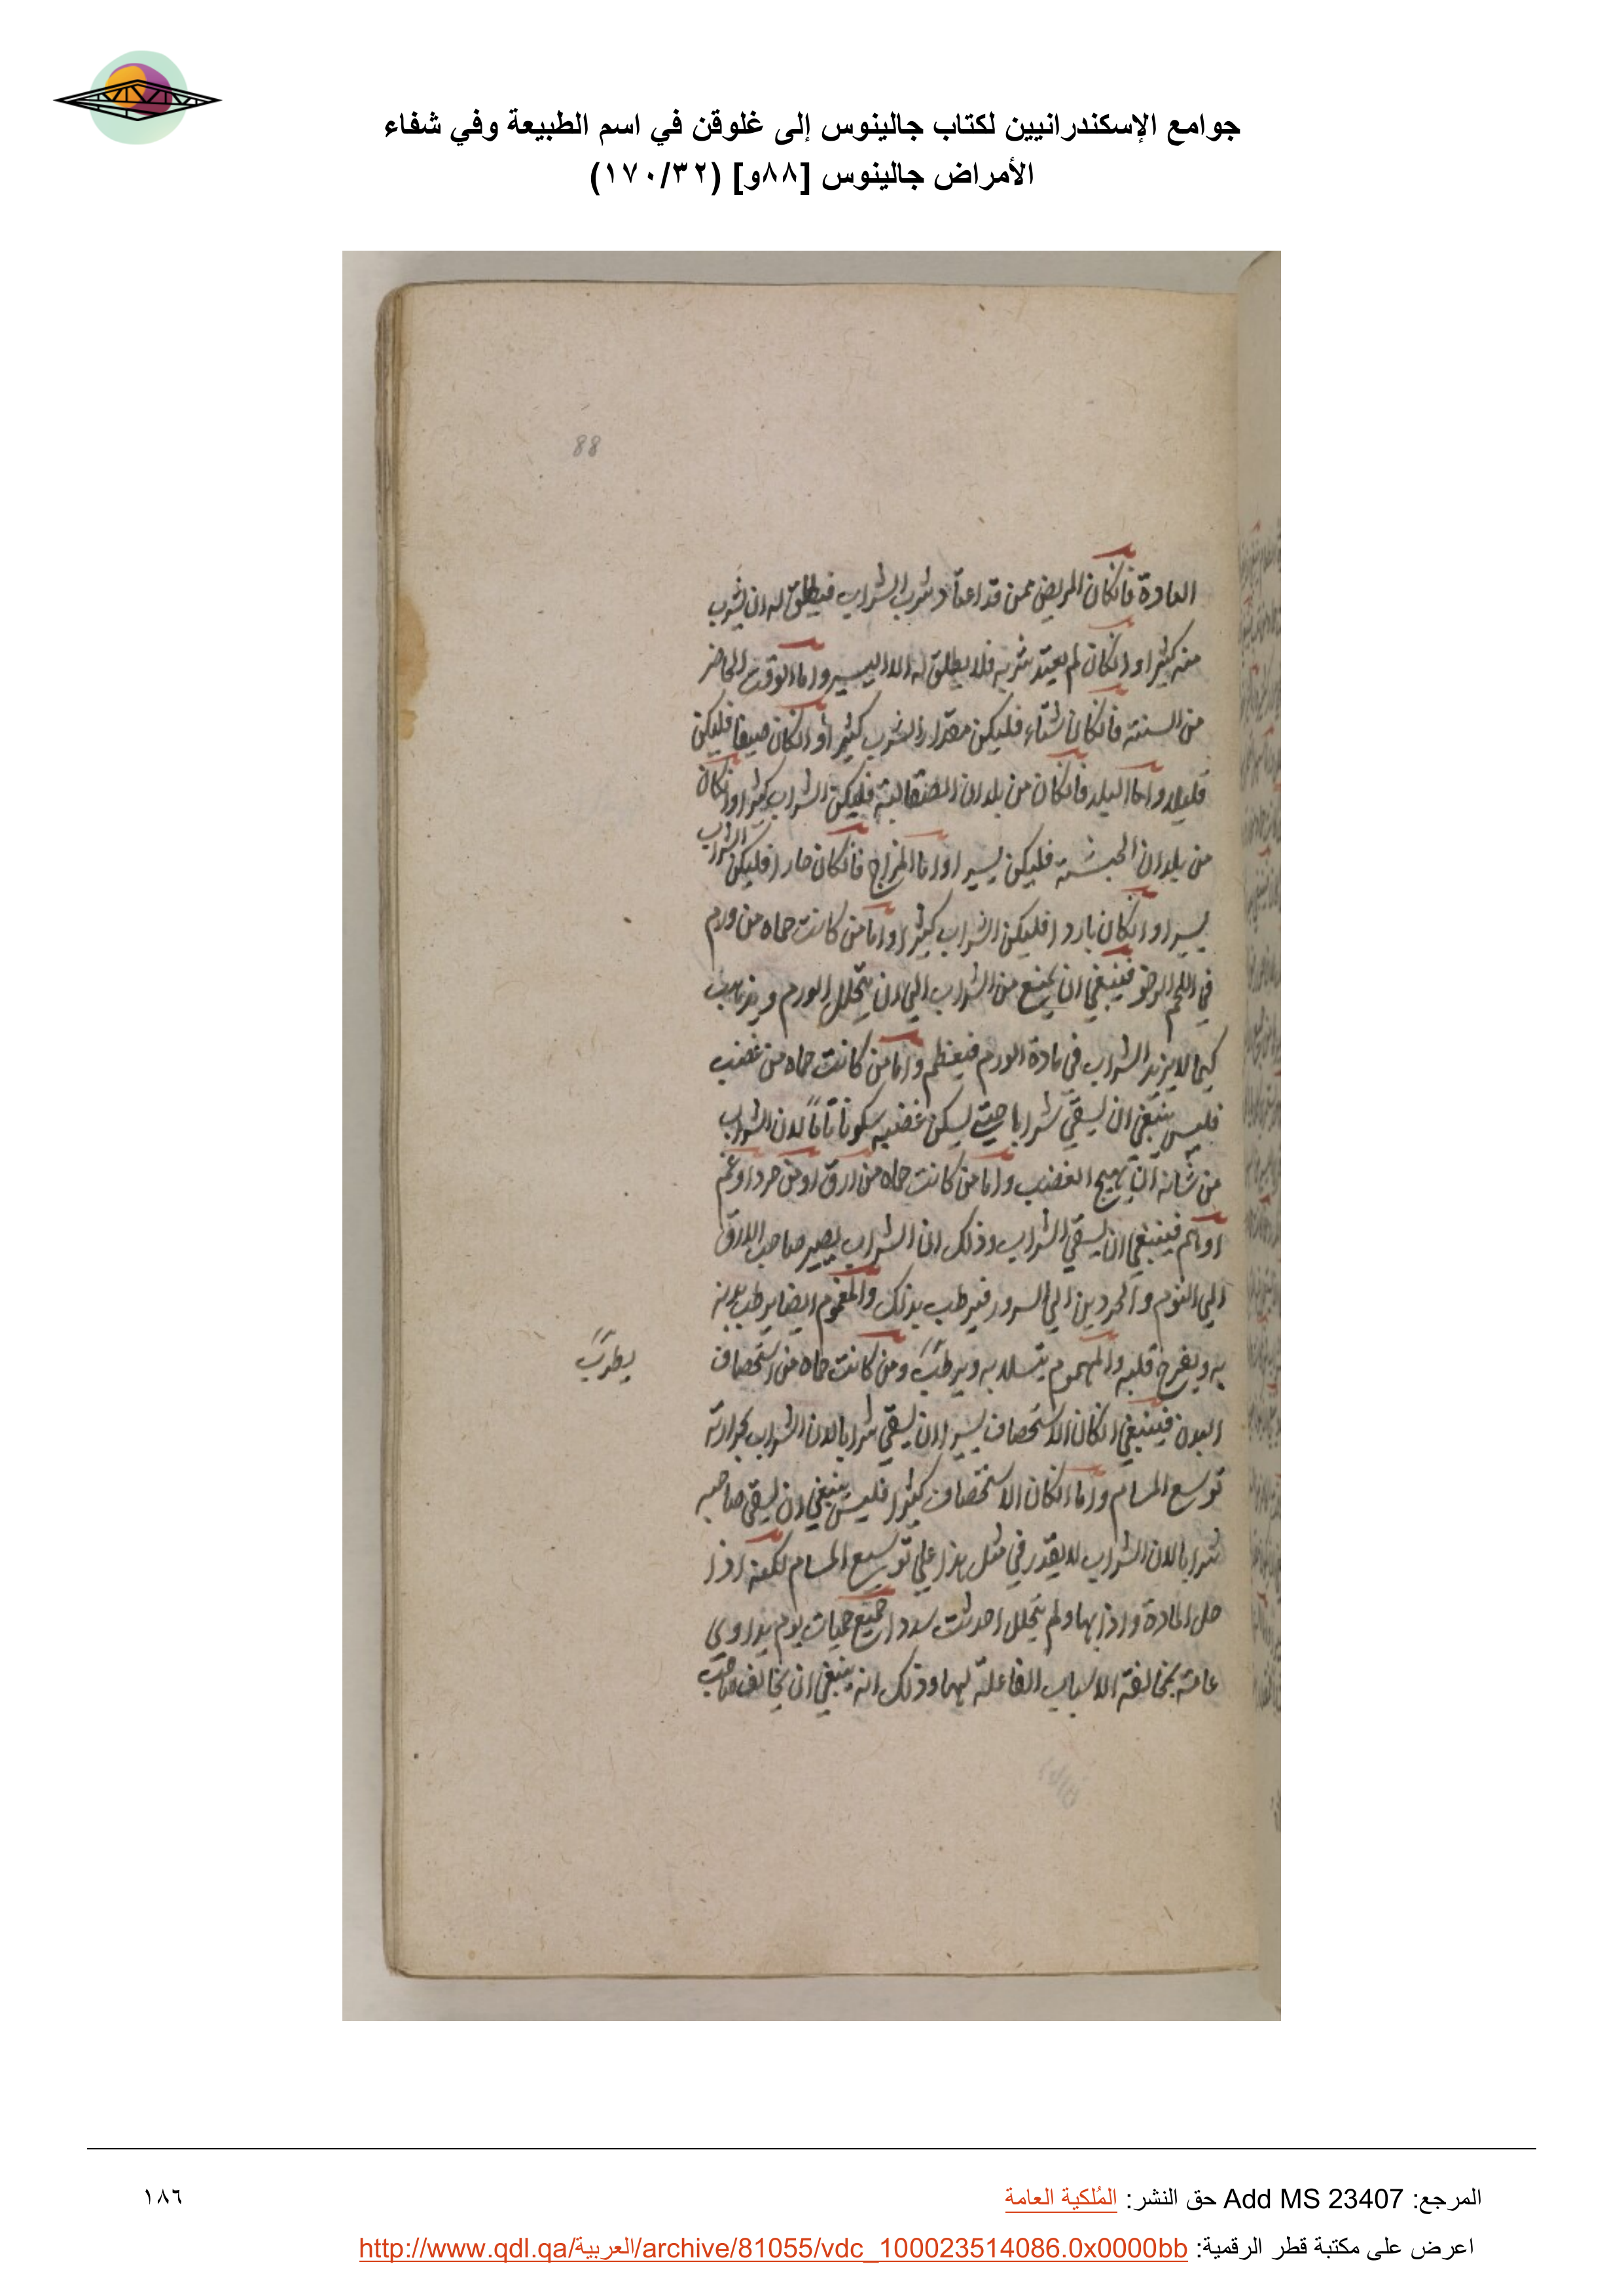 جوامع الإسكندرانيين لكتاب جالينوس إلى غلوقن في اسم الطبيعة وفي شفاء
الأمراض جالينوس [٨٨و] (١٧٠/٣٢)
88
العادة فانكان المريض ممن قد اعتاد شرب الشراب فيطلق له ان يشرب
منه كثيرا وانكان لم يعتد شربه فلا يطلق له الا اليسير واما الوقت الحاضر
من السنة فانكان شتاء فليكن مقدار الشرب كثيرا وانكان صيفا فليكن
قليلا واما البلد فانكان من بلدان الصقالبة فليكن الشراب كثيرا وانكان
من بلدان الحبشة فليكن يسيرا واما المزاج فانكان حارا فليكن الشراب
يسيرا وانكان باردا فليكن الشراب كثيرا واما من كانت حماه من ورم
في اللحم الرخو فينبغي ان يمنع من الشراب الي ان يتحلل الورم ويذهب
كيما لا يزيد الشراب في مادة الورم فيعظم واما من كانت حماه من غضب
فليس ينبغي ان يسقي شرابا حتي يسكن غضبه سكونا تاما لان الشراب
من شانه ان يهيج الغضب واما من كانت حماه من ارق او من حرد او غم
او هم فينبغي ان يسقي الشراب وذلك ان الشراب يصير صاحب الارق
الي النوم والحردين الي السرور فيرطب بذلك والمغموم ايضا يرطب بدنه
به ويفرح قلبه والمهموم يتسلا به ويرطب ومن كانت حماه من استحصاف
يطرب
البدن فينبغي انكان الاستحصاف يسيرا ان يسقي شرابا لان الشراب بحرارته
توسع المسام واما انكان الاستحصاف كثيرا فليس ينبغي ان يسقي صاحبه
شرابا لان الشراب لا يقدر في مثل هذا علي توسيع المسام لكنه اذا
حل المادة واذابها ولم يتحلل احدثت سددا جميع حميات يوم يداوي
عامة بمخالفة الاسباب الفاعلة لها وذلك انه ينبغي ان يخالف صاحب
المرجع: Add MS 23407 حق النشر: المُلكية العامة
١٨٦
اعرض على مكتبة قطر الرقمية: http://www.qdl.qa/العربية/archive/81055/vdc_100023514086.0x0000bb